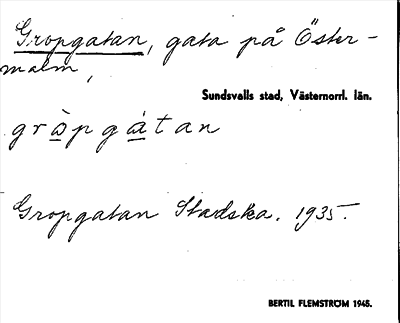 Gropgatan, gata på Öster-
malm,
Sundsvalls stad, Västernorrl. län.
gròpgátan
Gropgatan Stadska. 1935.
BERTIL FLEMSTRÖM 1945.